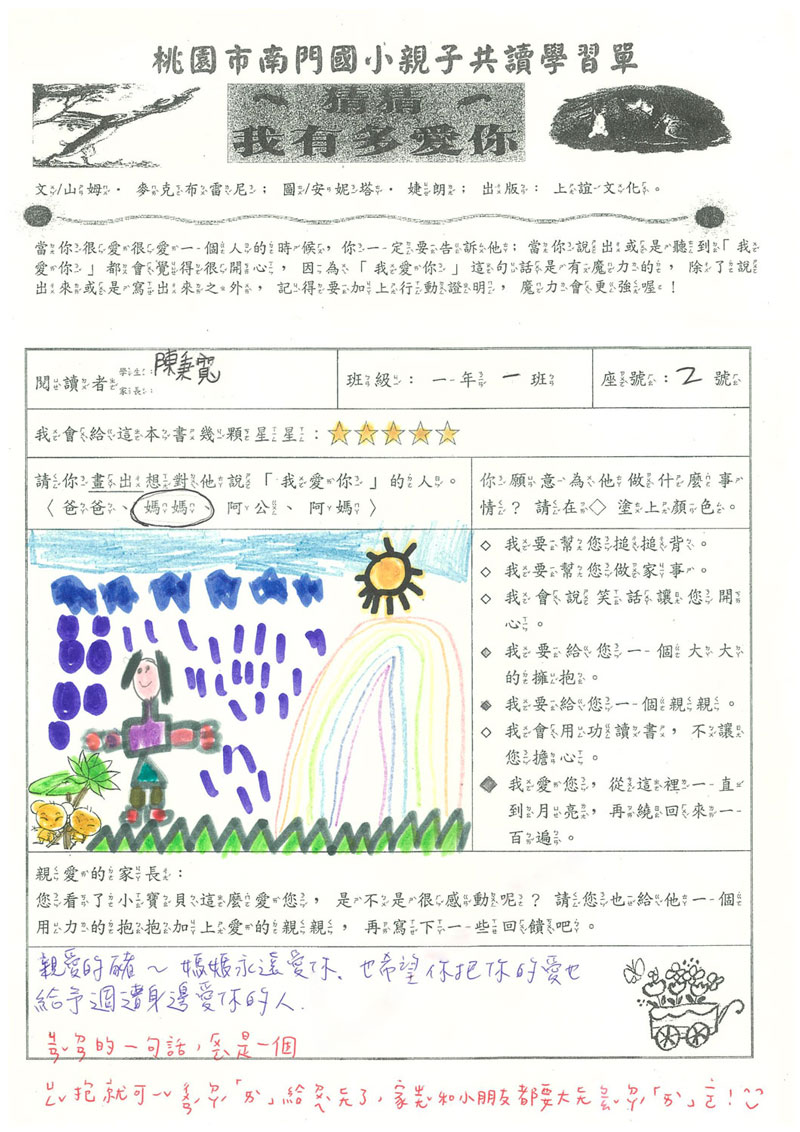 桃園市南門國小親子共讀學習單
~ 猜猜 ~
我有多愛你
文/山姆· 麥克布雷尼； 圖/安妮塔· 婕朗； 出版： 上誼文化。
當你很愛很愛一個人的時候，你一定要告訴他；當你說出或是聽到「我
愛你」都會覺得很開心，因為「我愛你」這句話是有魔力的，除了說
出來或是寫出來之外，記得要加上行動證明，魔力會更強喔！
閱讀者 學生： 家長： 陳秉寬
班級： 一年 一 班
座號： 2 號
我會給這本書幾顆星星：
請你畫出想對他說「我愛你」的人。
〈爸爸、媽媽、阿公、阿媽〉
你願意為他做什麼事
情？請在◇塗上顏色。
◇ 我要幫您搥搥背。
◇ 我要幫您做家事。
◇ 我會說笑話讓您開
心。
◆ 我要給您一個大大
的擁抱。
◆ 我要給您一個親親。
◇ 我會用功讀書，不讓
您擔心。
◆ 我愛您，從這裡一直
到月亮，再繞回來一
百遍。
親愛的家長：
您看了小寶貝這麼愛您，是不是很感動呢？請您也給他一個
用力的抱抱加上愛的親親，再寫下一些回饋吧。
親愛的豬～媽媽永遠愛你、也希望你把你的愛也
給予週遭身邊愛你的人.
的一句話，是一個
抱就可以「ㄞˋ」給了，家和小朋友都要大「ㄞˋ」！